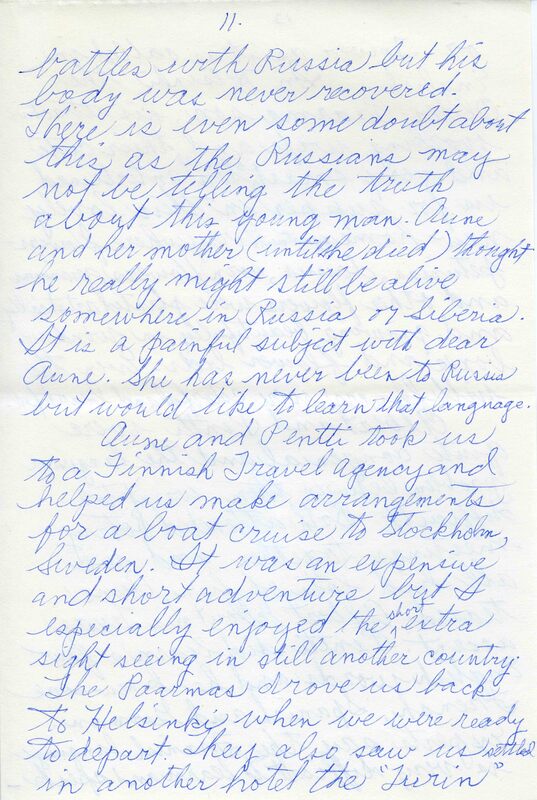 11.
battles with Russia but his
body was never recovered.
There is even some doubt about
this as the Russians may
not be telling the truth
about this young man. Aune
and her mother (until she died) thought
he really might still be alive
somewhere in Russia or Siberia.
It is a painful subject with dear
Aune. She has never been to Russia
but would like to learn that language.
Aune and Pentti took us
to a Finnish Travel agency and
helped us make arrangements
for a boat cruise to Stockholm,
Sweden. It was an expensive
and short adventure but I
especially enjoyed the short extra
sight seeing in still another country.
The Paarmas drove us back
to Helsinki when we were ready
to depart. They also saw us settled
in another hotel the "Turin"